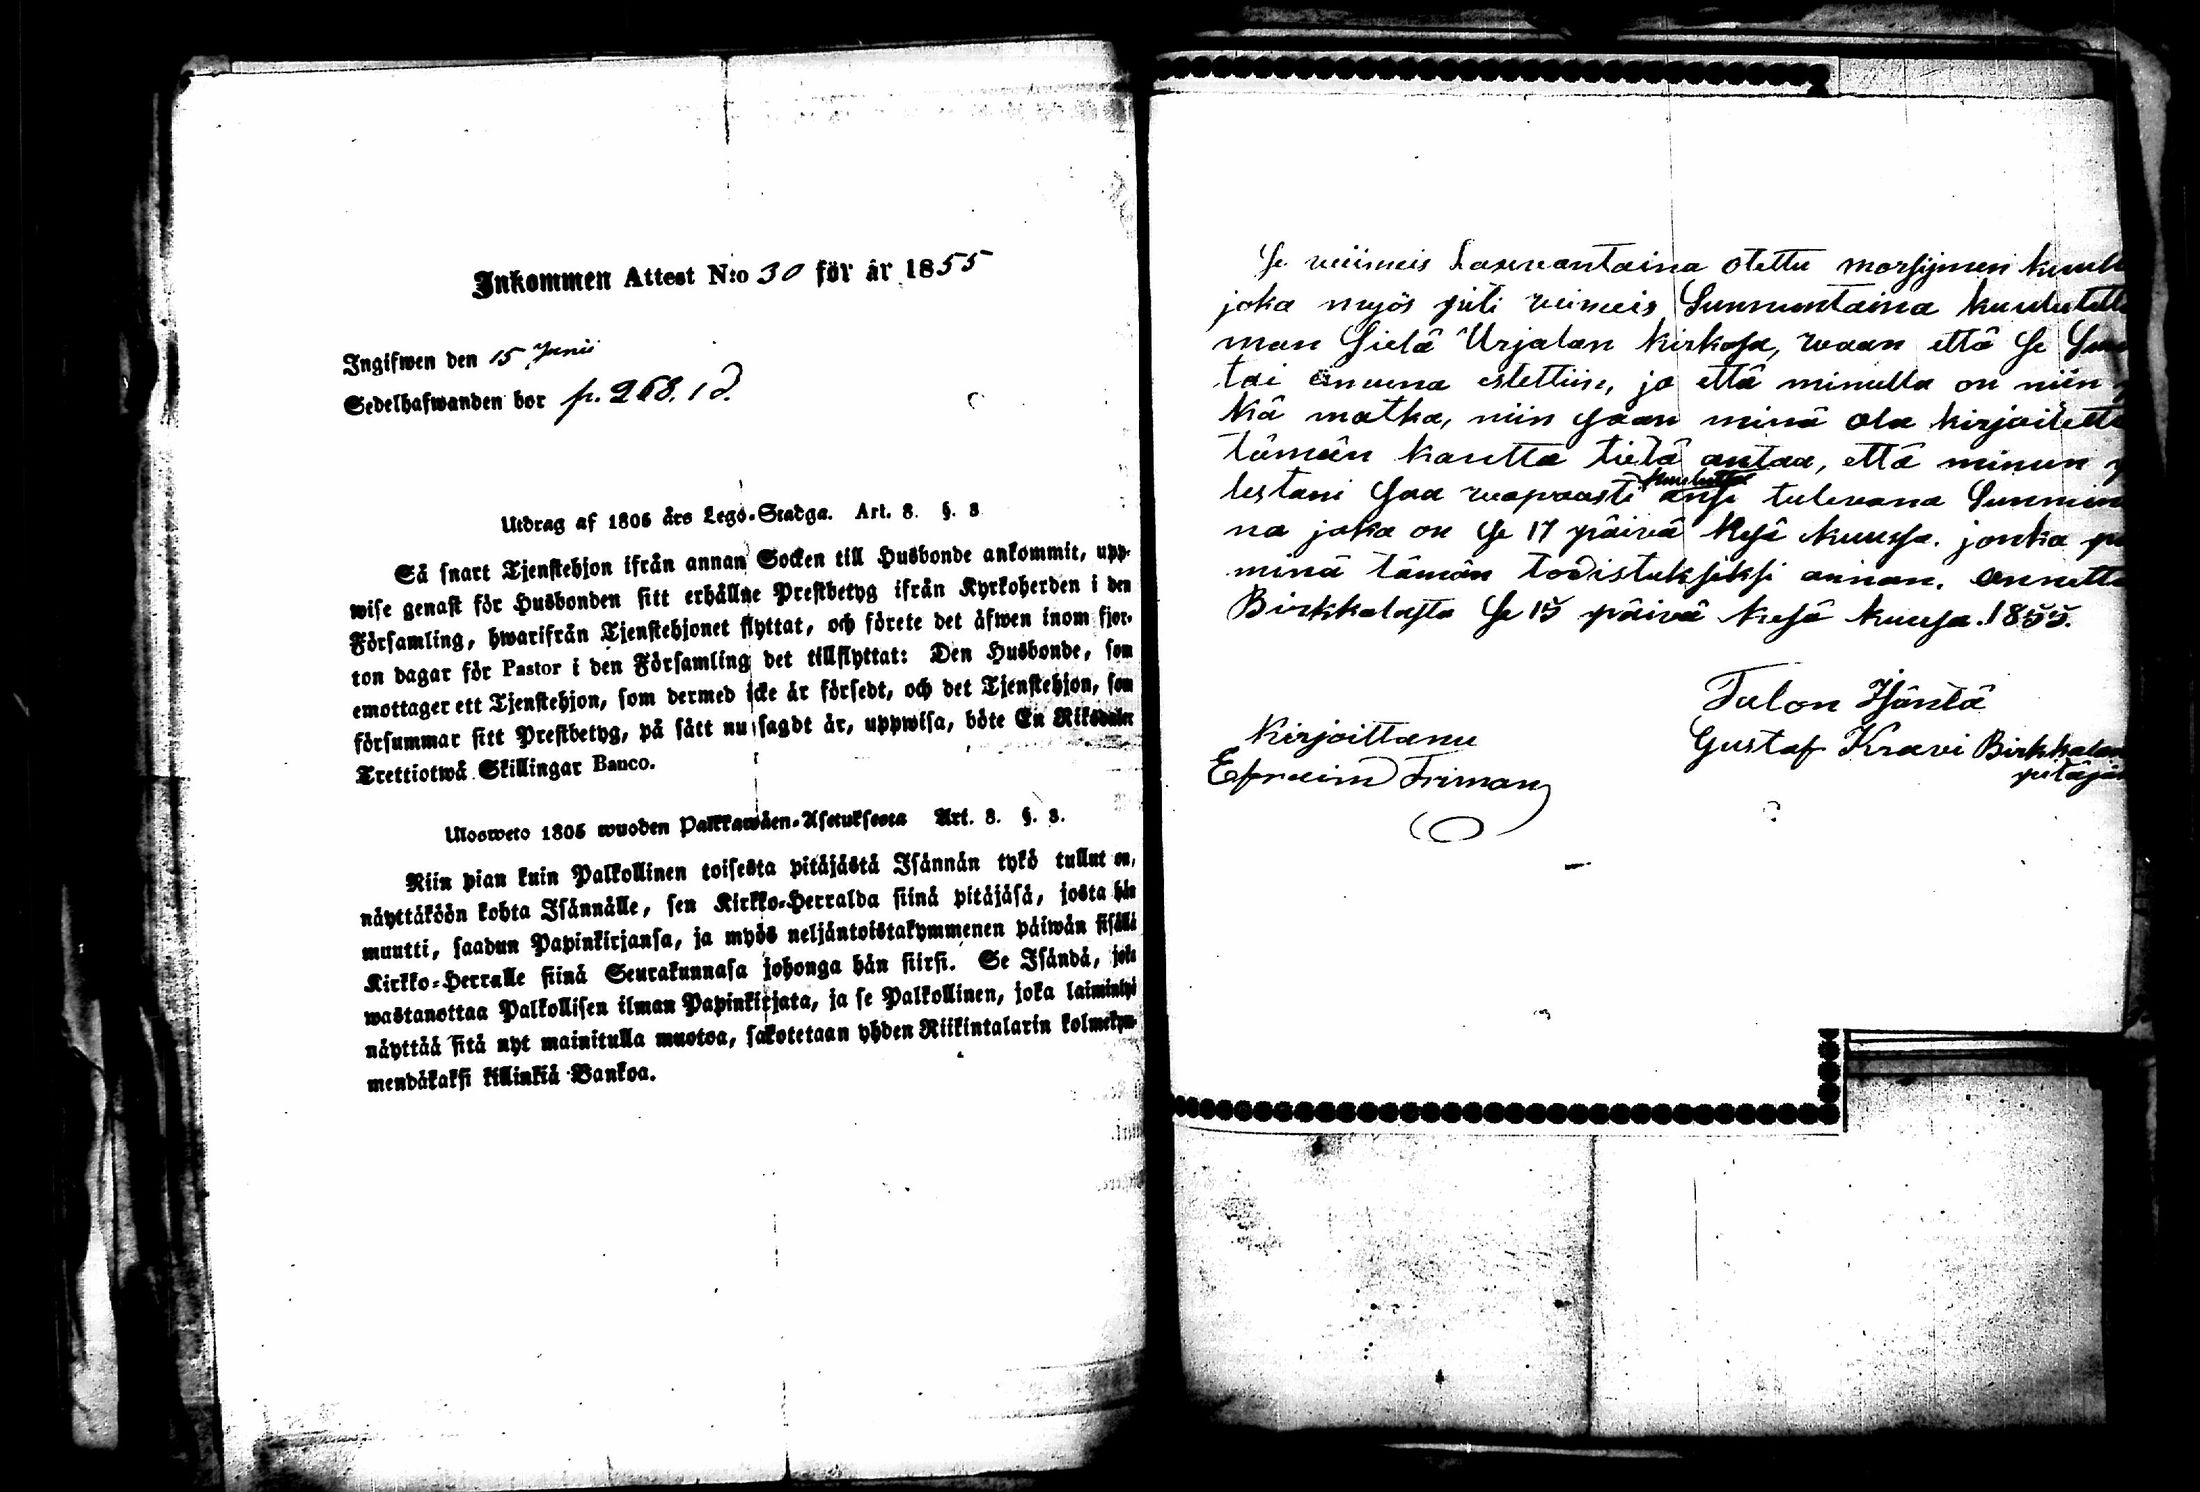 Inkommen Attest N:o 30 för år 1855
Ingifwen den 15 Junii
Sedelhafwanden bor p. 268.
Utdrag af 1805 års Lego-Stadga. Art. 8. §. 3
Så snart Tjenstehjon ifrån annan Socken till Husbonde ankommit, upp-
wise genast för Husbonden sitt erhållne Prestbetyg ifrån Kyrkoherden i den
Församling, hwarifrån Tjenstehjonet flyttat, och förete det äfwen inom fjor-
ton dagar för Pastor i den Församling det tillflyttat: Den Husbonde, som
emottager ett Tjenstehjon, som dermed icke är försedt, och det Tjenstehjon, som
försummar sitt Prestbetyg, på sätt nu sagdt är, uppwisa, böte En Riksdaler
Trettiotwå Skillingar Banco.
Ulosweto 1805 wuoden Palkkawäen-Asetuksesta Art. 8. §. 3.
Niin pian kuin Palkollinen toisesta pitäjästä Isännän tykö tullut on,
näyttäköön kohta Isännälle, sen Kirkko-Herralda siinä pitäjäsä, josta hän
muutti, saadun Papinkirjansa, ja myös neljäntoistakymmenen päiwän sisällä
Kirkko-Herralle siinä Seurakunnasa johonga hän siirsi. Se Isändä, joka
wastanottaa Palkollisen ilman Papinkirjata, ja se Palkollinen, joka laiminlyö
näyttää sitä nyt mainitulla muotoa, sakotetaan yhden Riikintalarin kolmekym-
mendäkaksi killinkiä Bankoa.
Se viimeis otettu morsijmen
joka myös piti viimeis Sunnuntaina
man Sielä Urjalan kirkosa, waan että Se
tai estettiin, ja että minulla on niin
kä matka, niin saan minä ola
tämän kautta tietä antaa, että minun
lestani Saa wapaasti kuulutta tulevana
na joka on Se 17 päivä kesä kuussa. jonka
minä tämän todistukseksi annan.
Birkkalasta Se 15 päivä kesä kuusa. 1855.
Talon Isäntä
Kirjoittanu
Gustaf Kravi
Efraim Friman